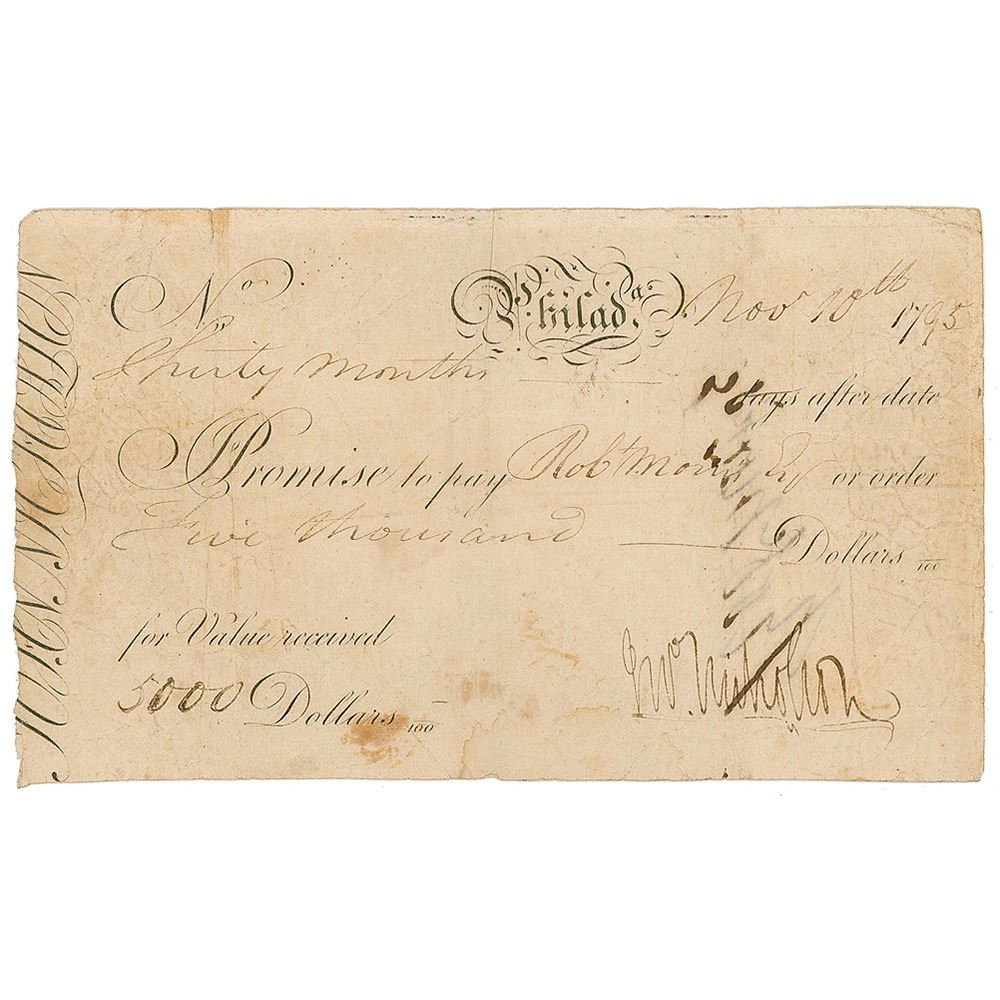 No.
Philada. Novr 10th 1795
Thirty Months days after date
Promise to pay Robt Morris Esqr or order
Five thousand Dollars /100
for Value received
5000 Dollars /100
Jno. Nicholson
JOHN NICHOLSON